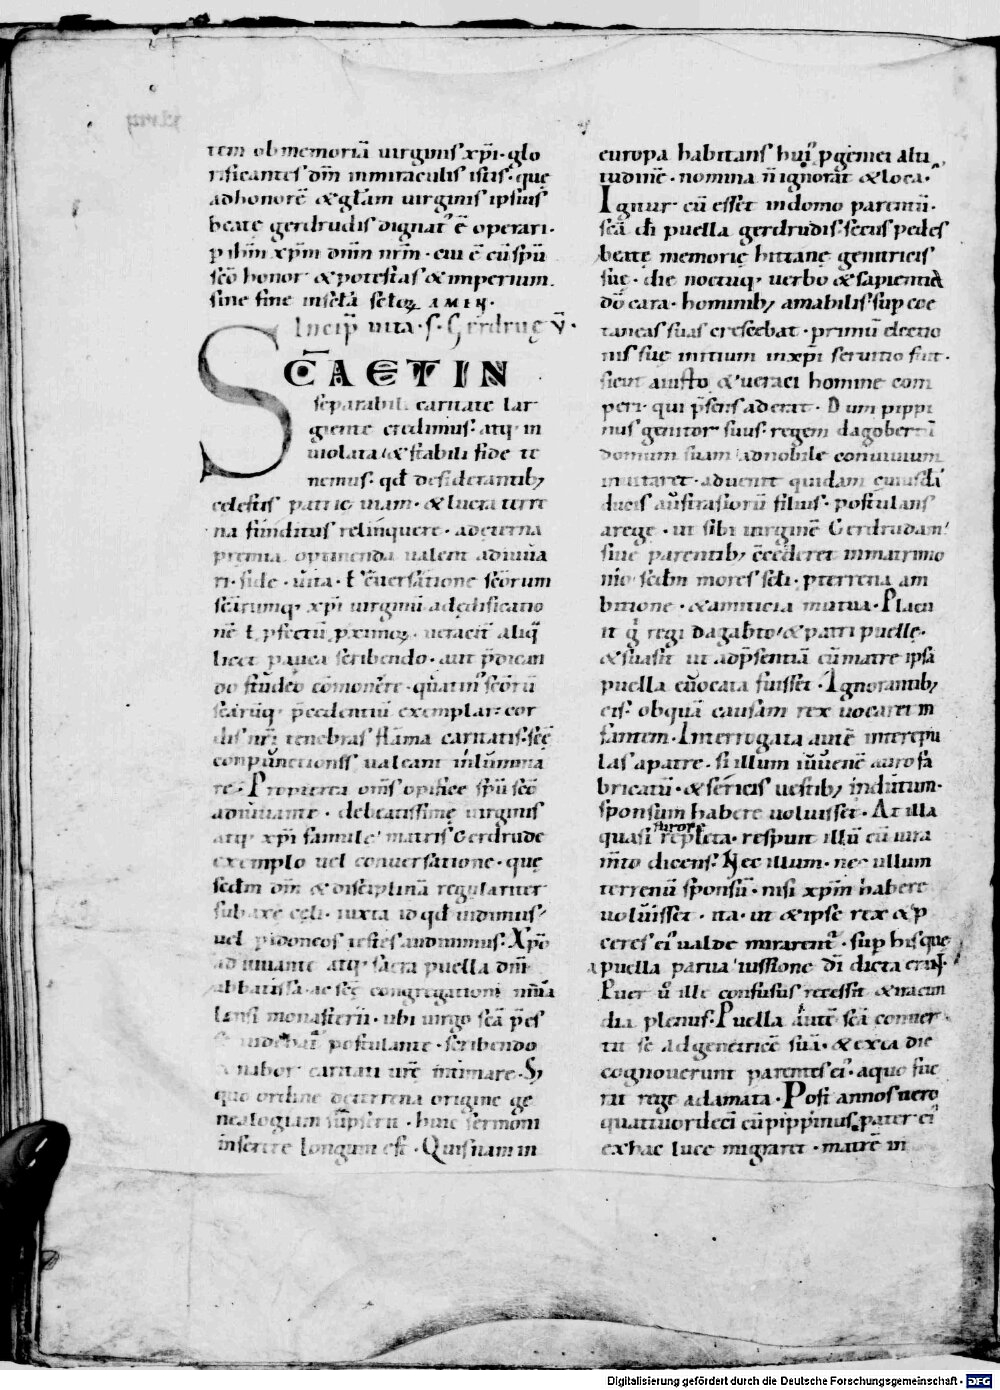 tem ob memoriā uirginis xp̄i· glo
rificantes dn̄m in miraculis istis· quę
ad honorē &gl̄am uirginis ipsius
beate gerdrudis dignat᷒ ē operari·
p ih̄m xp̄m dn̄m nr̄m· cui ē cū sp̄u
sc̄o honor &potestas &imperium·
sine fine in sc̄la sc̄loꝝ AMEN·
Incip̄ uita· S· Gerdrug v̄·
SC̄AETIN
separabili caritate lar
giente credimus· atq; in
uiolata &stabili fide te
nemus· qđ desiderantib;
celestis patrię uiam· &lucra terre
na funditus relinquere· ad ęterna
premia optinenda ualent adiuua
ri· fide· uita· ł c̄uersatione sc̄orum
sc̄arumq; xp̄i uirginū ad ędificatio
nē ł pfectū pximoꝝ· ueracit̄ aliq̄
licet pauca scribendo· aut p̄dican
do studeo cōmonere· quatin᷒ sc̄orū
sc̄arūq; p̄cedentiū exemplar· cor
dis nr̄i tenebras flāma caritatis· sc̄ę
conpunctionis ualeant inlumina
re· Propterea om̄s opifice sp̄u sc̄o
adiuuante· de beatissimę uirginis
atq; xp̄i famule matris Gerdrude
exemplo uel conuersatione· quę
sedm dm̄ &disciplinā regulariter
sub axe cęli· iuxta id qđ uidimus·
uel p idoneos testes audiuimus· Xp̄o
adiuuante atq; sacra puella dn̄i
abbatissa· ac sc̄ę congregationi niuia
lensi monasterii· ubi uirgo sc̄a p̄es
postulante· scribendo
labor caritati urē intimare· S;
quo ordine de terrena origine ge
nealogiam sūpserit· huic sermoni
inserere longum est· Quisnam in
europa habitans hui᷒ pgeniei alti
tudinē· nomina n̄ ignorat &loca·
Igitur cū esset in domo parentū·
sc̄a dī puella gerdrudis· secus pedes
beatę memorię hittanę genitricis
suę· die noctuq; uerbo &sapientia
dō cara· hominib; amabilis· sup coe
taneas suas crescebat· primū electio
nis suę initium in xp̄i seruitio fuit·
sicut a iusto &ueraci homine com
peri· qui p̄sens aderat· Dum pippi
nus genitor suus· regem dagobertū
domum suam ad nobile conuiuium
inuitaret· aduenit quidam
ducis austrasiorū filius· postulans
a rege· ut sibi uirginē Gerdrudam
siue parentib; c̄cederet in matrimo
nio· sedm mores scli· p terrena am
bitione· &amiticia mutua· Placu
it q̊ regi dagabto· &patri puelle·
&suasit ut ad p̄sentiā cū matre ipsa
puella euocata fuisset· Ignorantib;
eis· ob quā causam rex uocaret in
fantem· Interrogata autē inter epu
las a patre· si illum iuuenē auro fa
bricatū· &sericis uestib; indutum·
sponsum habere uoluisset· At illa
quasi furore repleta· respuit illū cū iura
m̄to dicens· Nec illum· nec ullum
terrenū sponsū· nisi xp̄m habere
uoluisset· ita· ut &ipse rex &p
ceres ei᷒ ualde mirarent᷒· sup his quę
a puella parua iussione dī dicta erant·
Puer ū ille confusus recessit &iracun
dia plenus· Puella autē sc̄a conuer
tit se ad genitricē suā· &exea die
cognouerunt parentes ei᷒· a quo fue
rit rege adamata· Post annos uero
quattuordeci cū pippinus pater ei᷒
ex hac luce migraret· matrē in
Digitalisierung gefördert durch die Deutsche Forschungsgemeinschaft - DFG